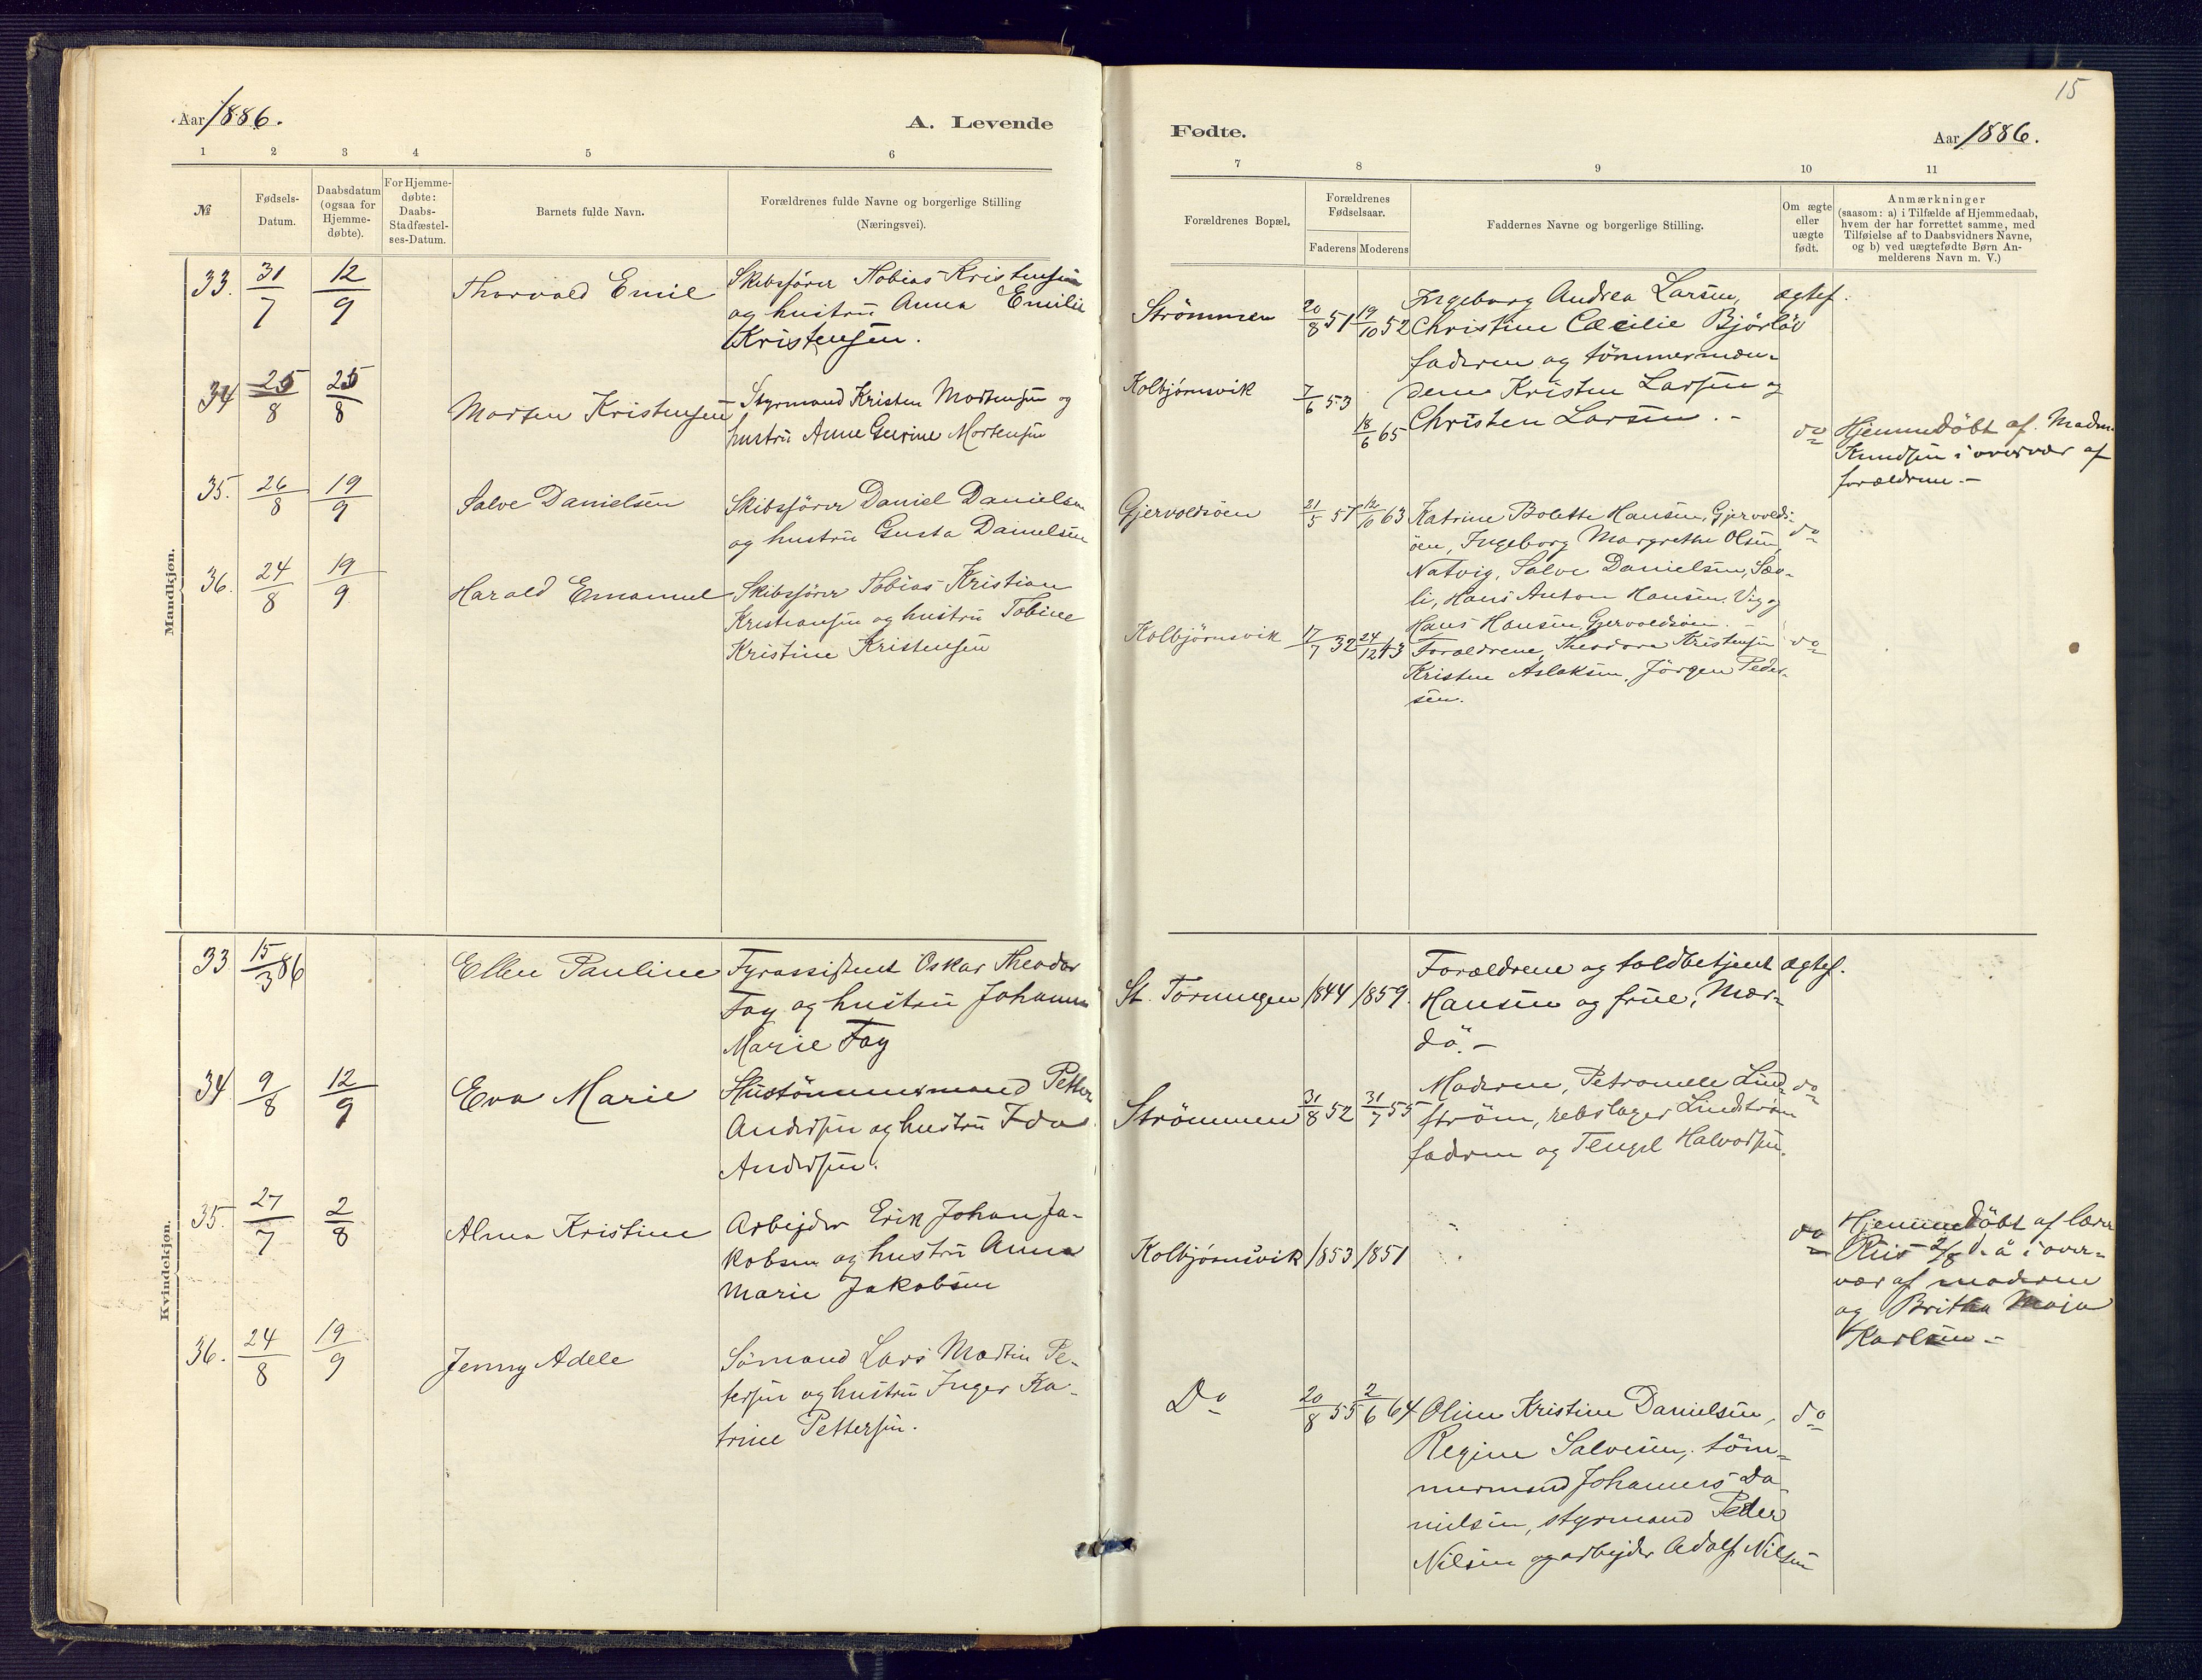 15
Aar 1886.
A. Levende
Fødte.
Aar 1886.
1 2 3 4 5 6
7 8 9 10 11
№
Fødsels-
Datum.
Daabsdatum
(ogsaa for
Hjemme-
døbte).
For Hjemme-
døbte:
Daabs-
Stadfæstel-
ses-Datum.
Barnets fulde Navn.
Forældrenes fulde Navne og borgerlige Stilling
(Næringsvei).
Forældrenes Bopæl.
Forældrenes
Fødselsaar.
Faderens Moderens
Faddernes Navne og borgerlige Stilling.
Om ægte
eller
uægte
født.
Anmærkninger
(saasom: a) i Tilfælde af Hjemmedaab,
hvem der har forrettet samme, med
Tilføielse af to Daabsvidners Navne,
og b) ved uægtefødte Børn An-
melderens Navn m. V.)
Mandkjøn.
33. 31/7 12/9
Thorvald Emil
Skibsfører Tobias Kristensen
og hustru Anna Emilie
Kristensen.
Strömmen
20/8 51 19/10 52
Ingeborg Andrea Larsen,
Christine Cæcilie Bjørløv
faderen og tömmermæn-
dene Kristen Larsen og
Christen Larsen. -
ægtef.
34 25/8 25/8
Morten Kristensen
Styrmand Kristen Mortensen og
hustru Anne Gurine Mortensen
Kolbjörnsvik
7/6 53
18/6 65
do
Hjemmedöbt af Madm.
Knudsen i overvær af
forældrene. -
35. 26/8 19/9
Salve Danielsen
Skibsfører Daniel Danielsen
og hustru Gusta Danielsen
Gjervoldsöen
21/5 57 12/10 63
Katrine Bolette Hansen, Gjervolds-
öen, Ingeborg Margrethe Olsen
Natvig, Salve Danielsen, Sæv-
li, Hans Anton Hansen, Vig og
Hans Hansen, Gjervoldsöen. -
do
36. 24/8 19/9
Harald Emanuel
Skibsfører Tobias Kristian
Kristiansen og hustru Tobine
Kristine Kristensen
Kolbjörnsvik
17/7 32 24/12 43
Forældrene, Theodora Kristensen
Kristen Aslaksen, Jörgen Peder-
sen.
do
Kvindekjøn.
33 15/3 86
Ellen Pauline
Fyrassistent Oskar Theodor
Fay og hustru Johanna
Marie Fay
St. Torungen
1844 1859.
Forældrene og toldbetjent
Hansen og frue, Mær-
dö. -
ægtef.
34 9/8 12/9
Eva Marie
Hustömmermand Petter
Andersen og hustru Ida
Andersen.
Strömmen
31/8 52 31/7 55
Moderen, Petronelle Lind-
ström, rebslager Lindström
faderen og Tengel Halvorsen.
do
35. 27/7 2/8
Alma Kristine
Arbejder Erik Johan Ja-
kobsen og hustru Anna
Marie Jakobsen
Kolbjörnsvik
1853 1851
do
Hjemmedöbt af lærer
Riis 2/8 d. å i over-
vær af moderen
og Britha Maja
Karlsen -
36. 24/8 19/9
Jenny Adele
Sömand Lars Martin Pe-
tersen og hustru Inger Ka-
trine Pettersen.
Do
20/8 55 2/6 64
Oline Kristine Danielsen,
Regine Salvesen, töm-
mermand Johannes Da-
nielsen, styrmand Peder
Nilsen og arbejder Adolf Nilsen
do